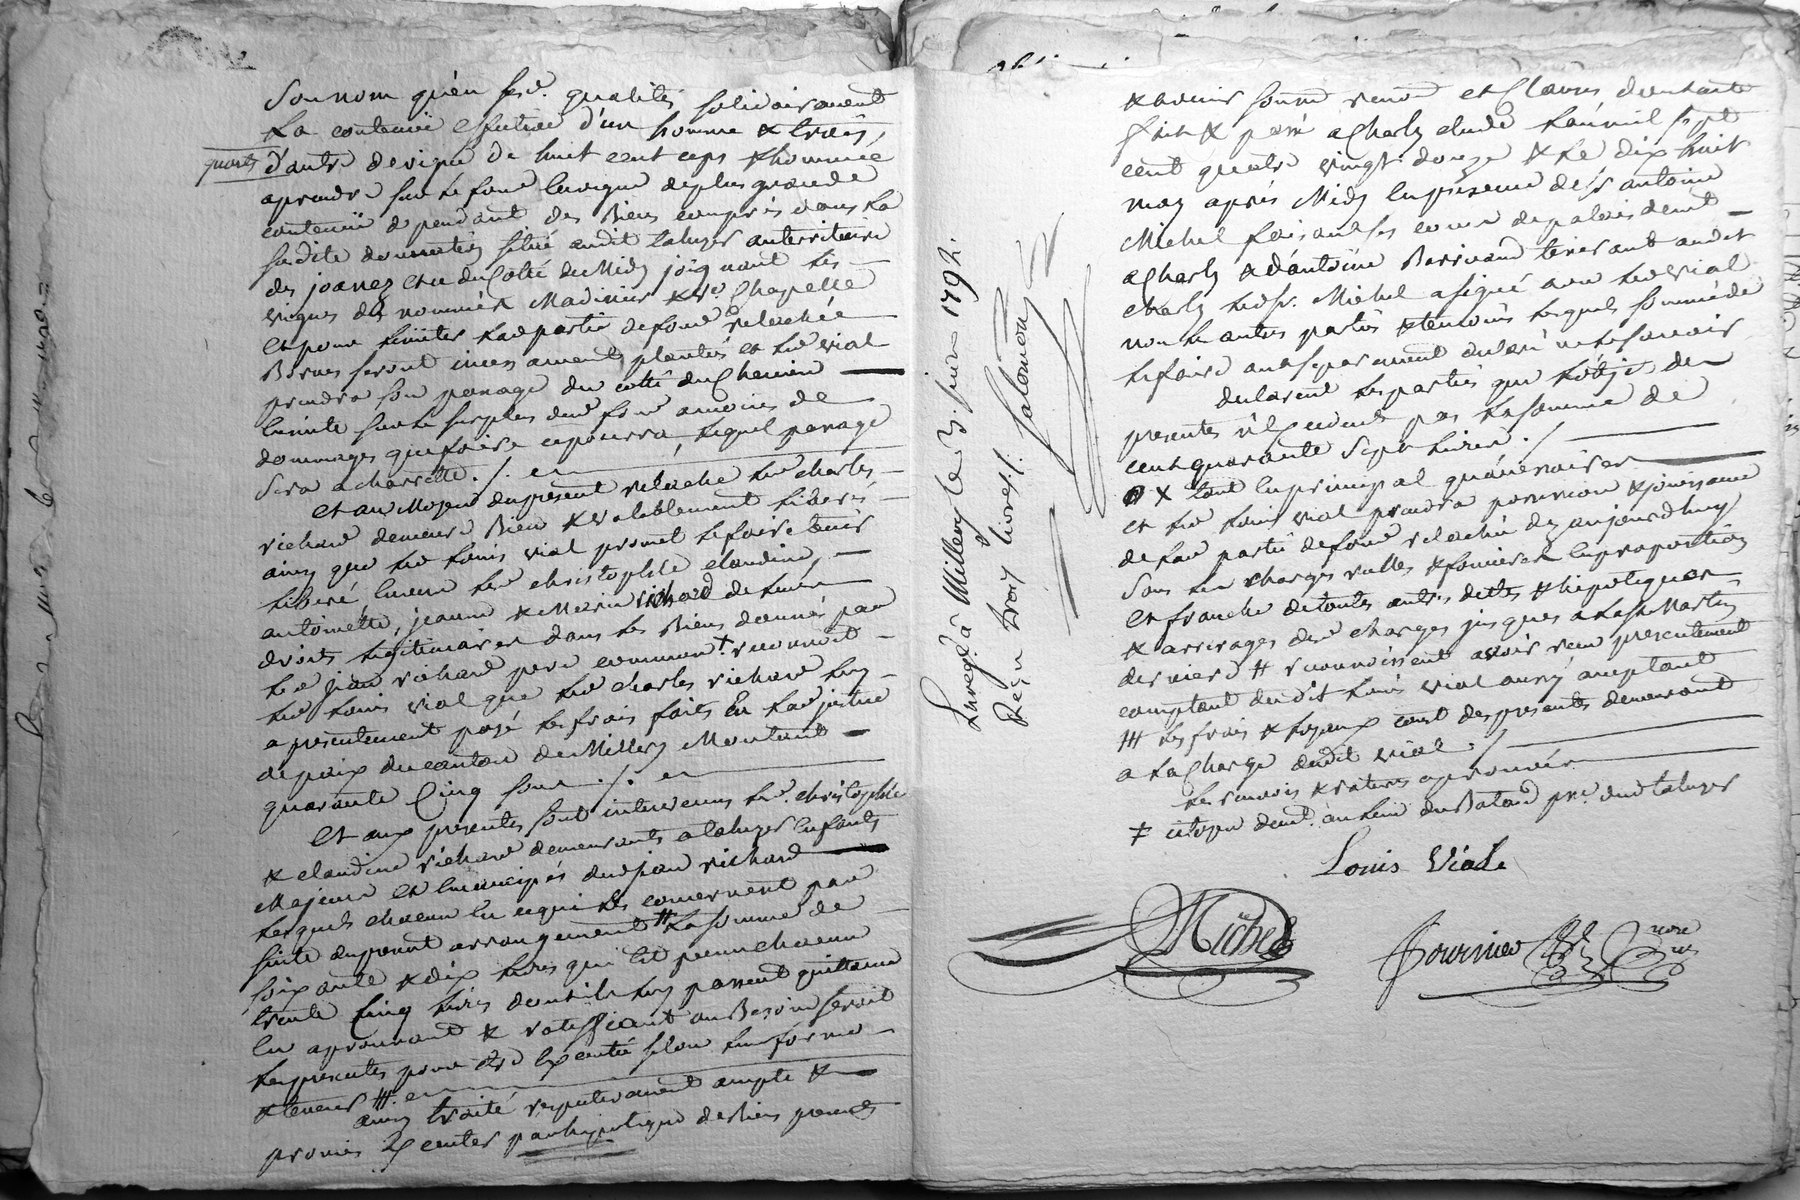 Son nom qu'en sesd. qualités solidairement
la contenuë effective d'un homme & trois
quarts
d'autre de vigne de huit cent ceps l'hommée
aprendre sur le fond en vigne de plus grande
contenuë dependant des Biens compris dans la
susdite donnation situé audit taluyer au territoire
des joanez et ce du Cotté du Midy joignant les
vignes des nommés Madinier & Ve. Chapelle
et pour limiter lad partie de fond relachée
Bornes seront incessament plantés et led vial
prendra son passage du cotté du Chemin
limité sur le surplus dud fond a moins de
dommages que faire ce pourra, lequel passage
sera a charrette ./. en
et au Moyen du present relache led charles
richard demeure Bien & valablement liberé
ainsy que led Louis vial promet le faire tenir
liberé envers led christophle claudine
antoinette, jeanne & Marie richard de leurs
droits legitimaires dans les Biens donnés par
led jean richard pere commun ‡ reconnoit
led Louis vial que led charles richard luy
a presentement payé les frais faits En la justice
de paix du canton de Millery Montant
quarante Cinq sous ./. en
Et aux presentes sont intervenus led. christophle
& claudine richard demeurants a taluyer Enfants
Majeurs et Emancipés dud jean richard
lesquels chacun En ce qui les concernent par
suite du present arrangement # la somme de
soixante & dix livres qui est pour chacun
trente Cinq livres dont ils luy passent quittance
En aprouvant & ratiffiant au Besoin seroit
les presentes pour etre Executé selon leur forme
& teneur ##. en
ainsy traité respectivement accepté &
promis Executer par hypotique de Biens presents
Enregé. à Millery le 3. juin 1792.
Reçu trois livres ./. Salomon
& avenir soumis renonc et Clauses dont acte
fait & passé a Charly etude L'an mil sept
cent quatre vingt douze & le dix huit
may après Midy En presence de Sr antoine
Michel faisant ses cours de palais demt
a Charly & d'antoine Barriand tisserant audit
charly led Sr. Michel a signé avec led vial
non les autres parties & temoins lesquels sommés de
le faire ont separement declaré ne le savoir
declarent les parties que l'objet des
presentes n'Excedent pas la somme de
cent quarante Sept livres ./.
X tout En principal qu'accessoires
et led Louis vial prendra possession & jouissance
de lad partie de fond relachée dez aujourd'huy
Sous les charges reelles & foncieres En proportion
et franche de toutes autres dettes & hipoteques
& arrerages dud charges jusques a la St Martin
dernier # reconnoissent avoir reçu presentement
comptant dudit Louis vial aussy acceptant
## les frais & loyaux cout des presentes demeurant
a la Charge dudit vial ./.
les renvois & ratures aprouvés
‡ citoyen demt. au lieu du Batard pse. dud taluyer
Louis Viale
Michel
Fournier